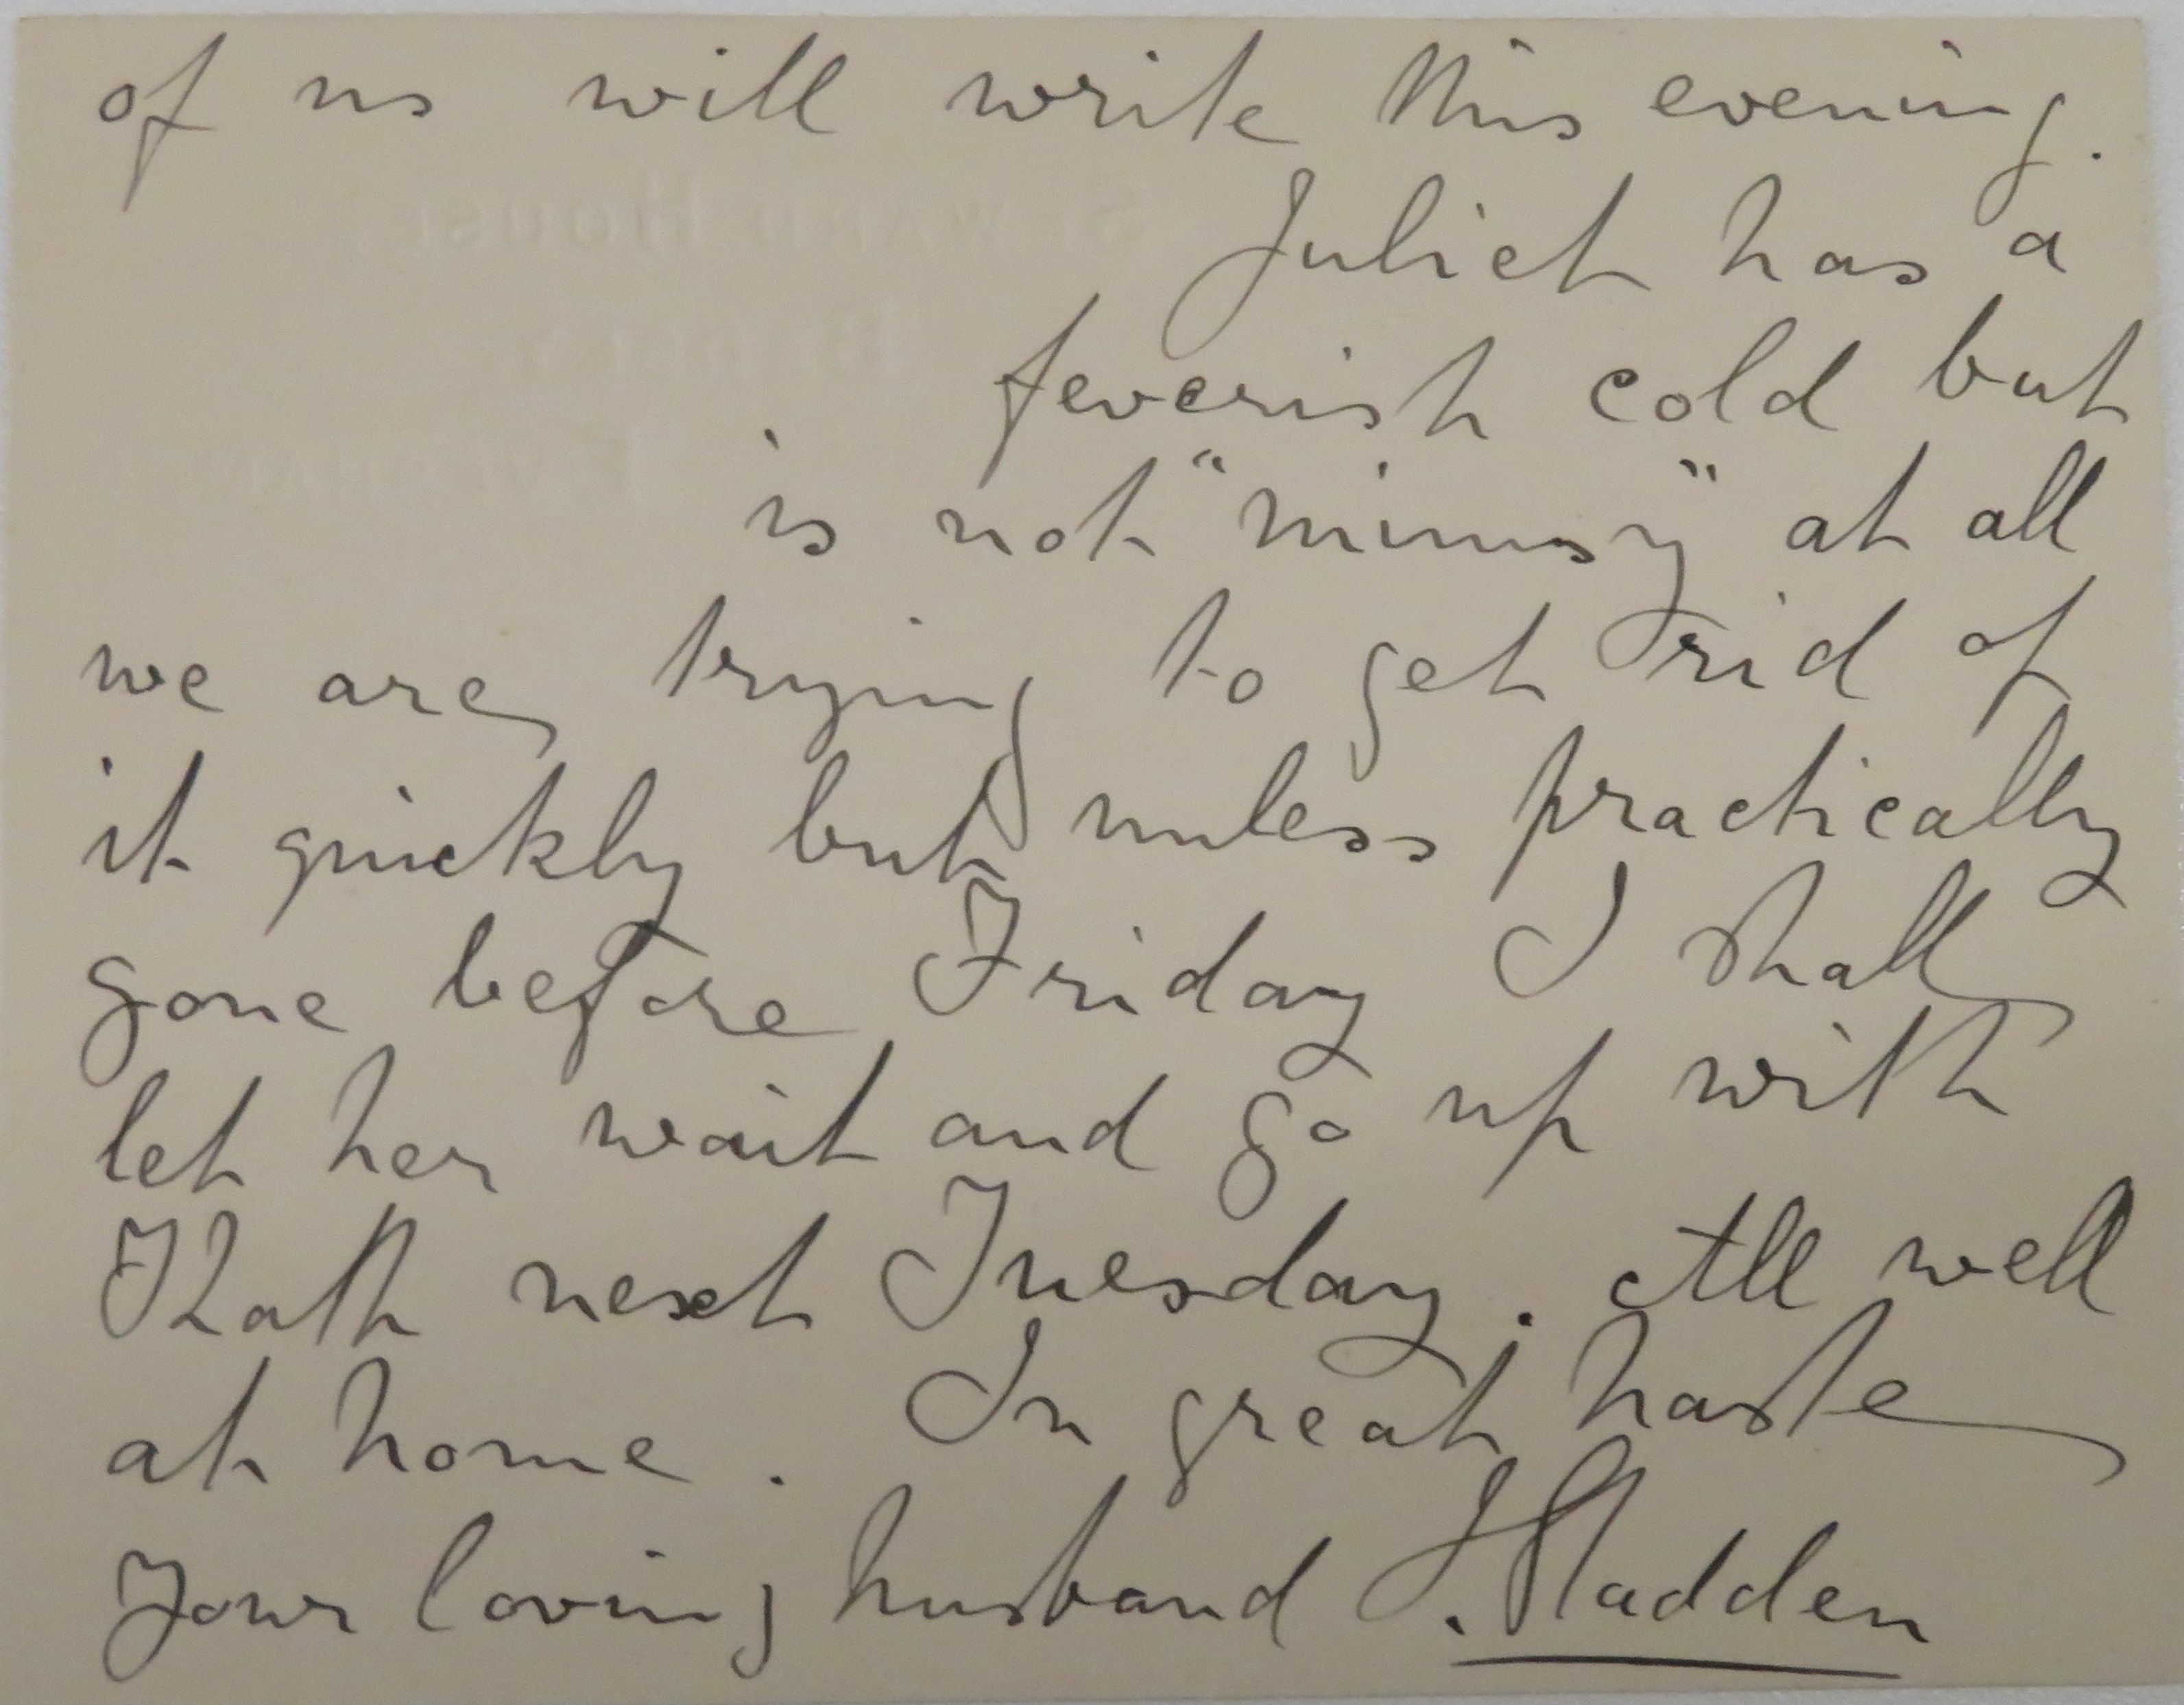 of us will write this evening.
Juliet has a
feverish cold but
is not "mimsy" at all
we are trying to get rid of
it quickly but unless practically
gone before Friday I shall
let her wait and go up with
Kath next Tuesday. All well
at home. In great haste
Your loving husband J. Sladden